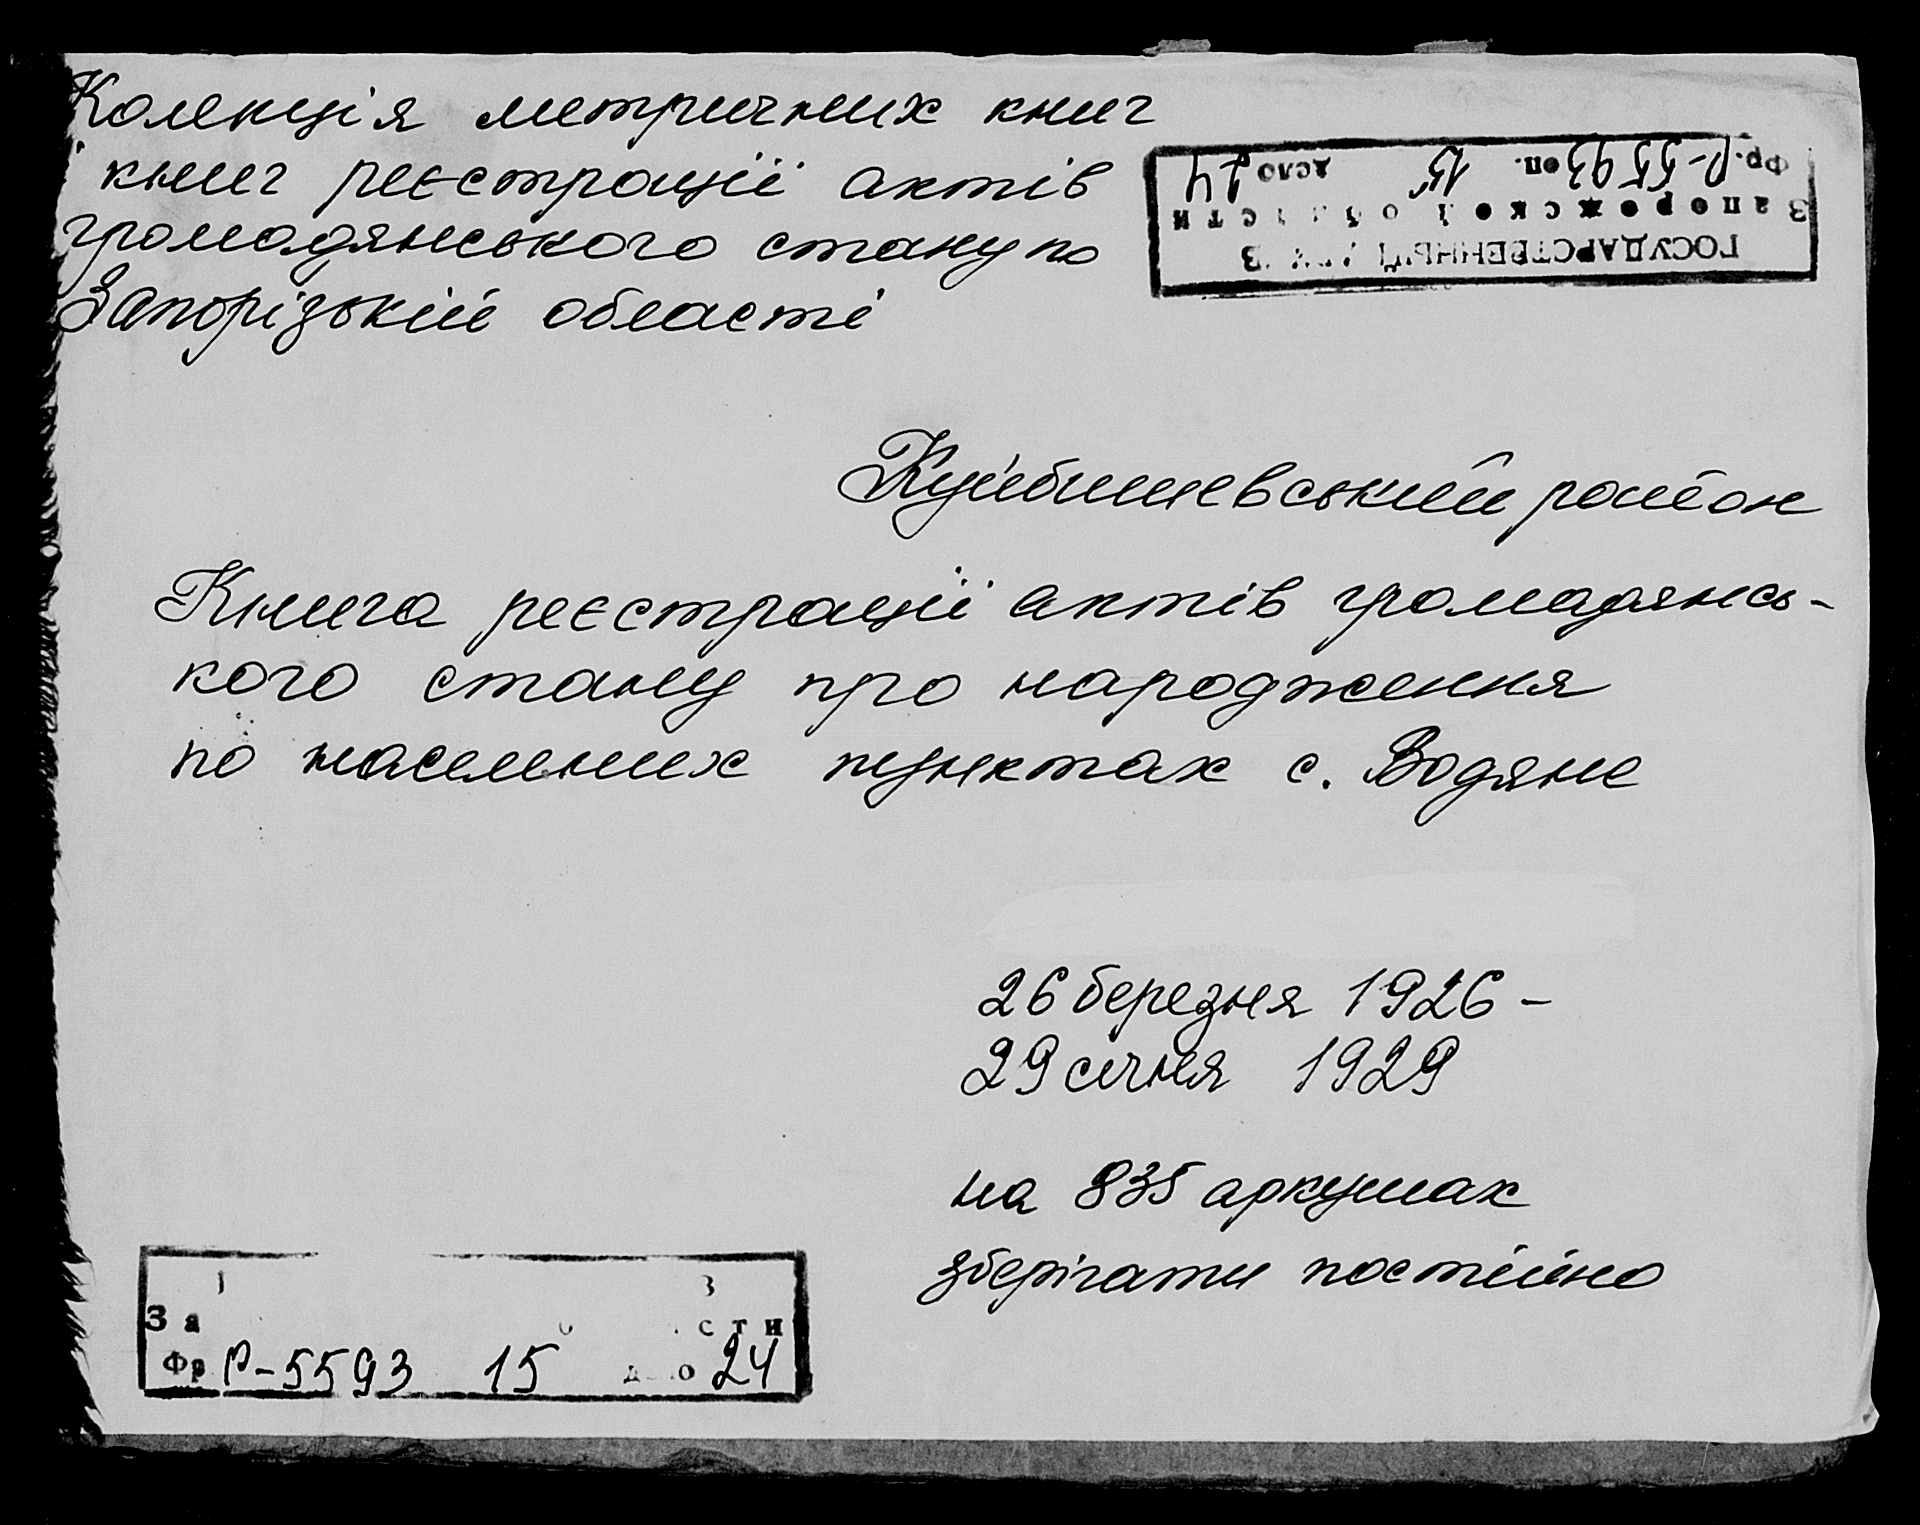 Колекція метричних книг
і книг реєстрації актів
громадянського стану по
Запорізькій області
ГОСУДАРСТВЕННЫЙ
Запорожской области
Фр. Р-5593 оп. 15 дело 24
Куйбишевський район
Книга реєстрації актів громадянсь-
кого стану про народження
по населених пунктах с. Водяне
26 березня 1926 -
29 січня 1929
на 835 аркушах
зберігати постійно
За сти
Фр Р-5593 15 24